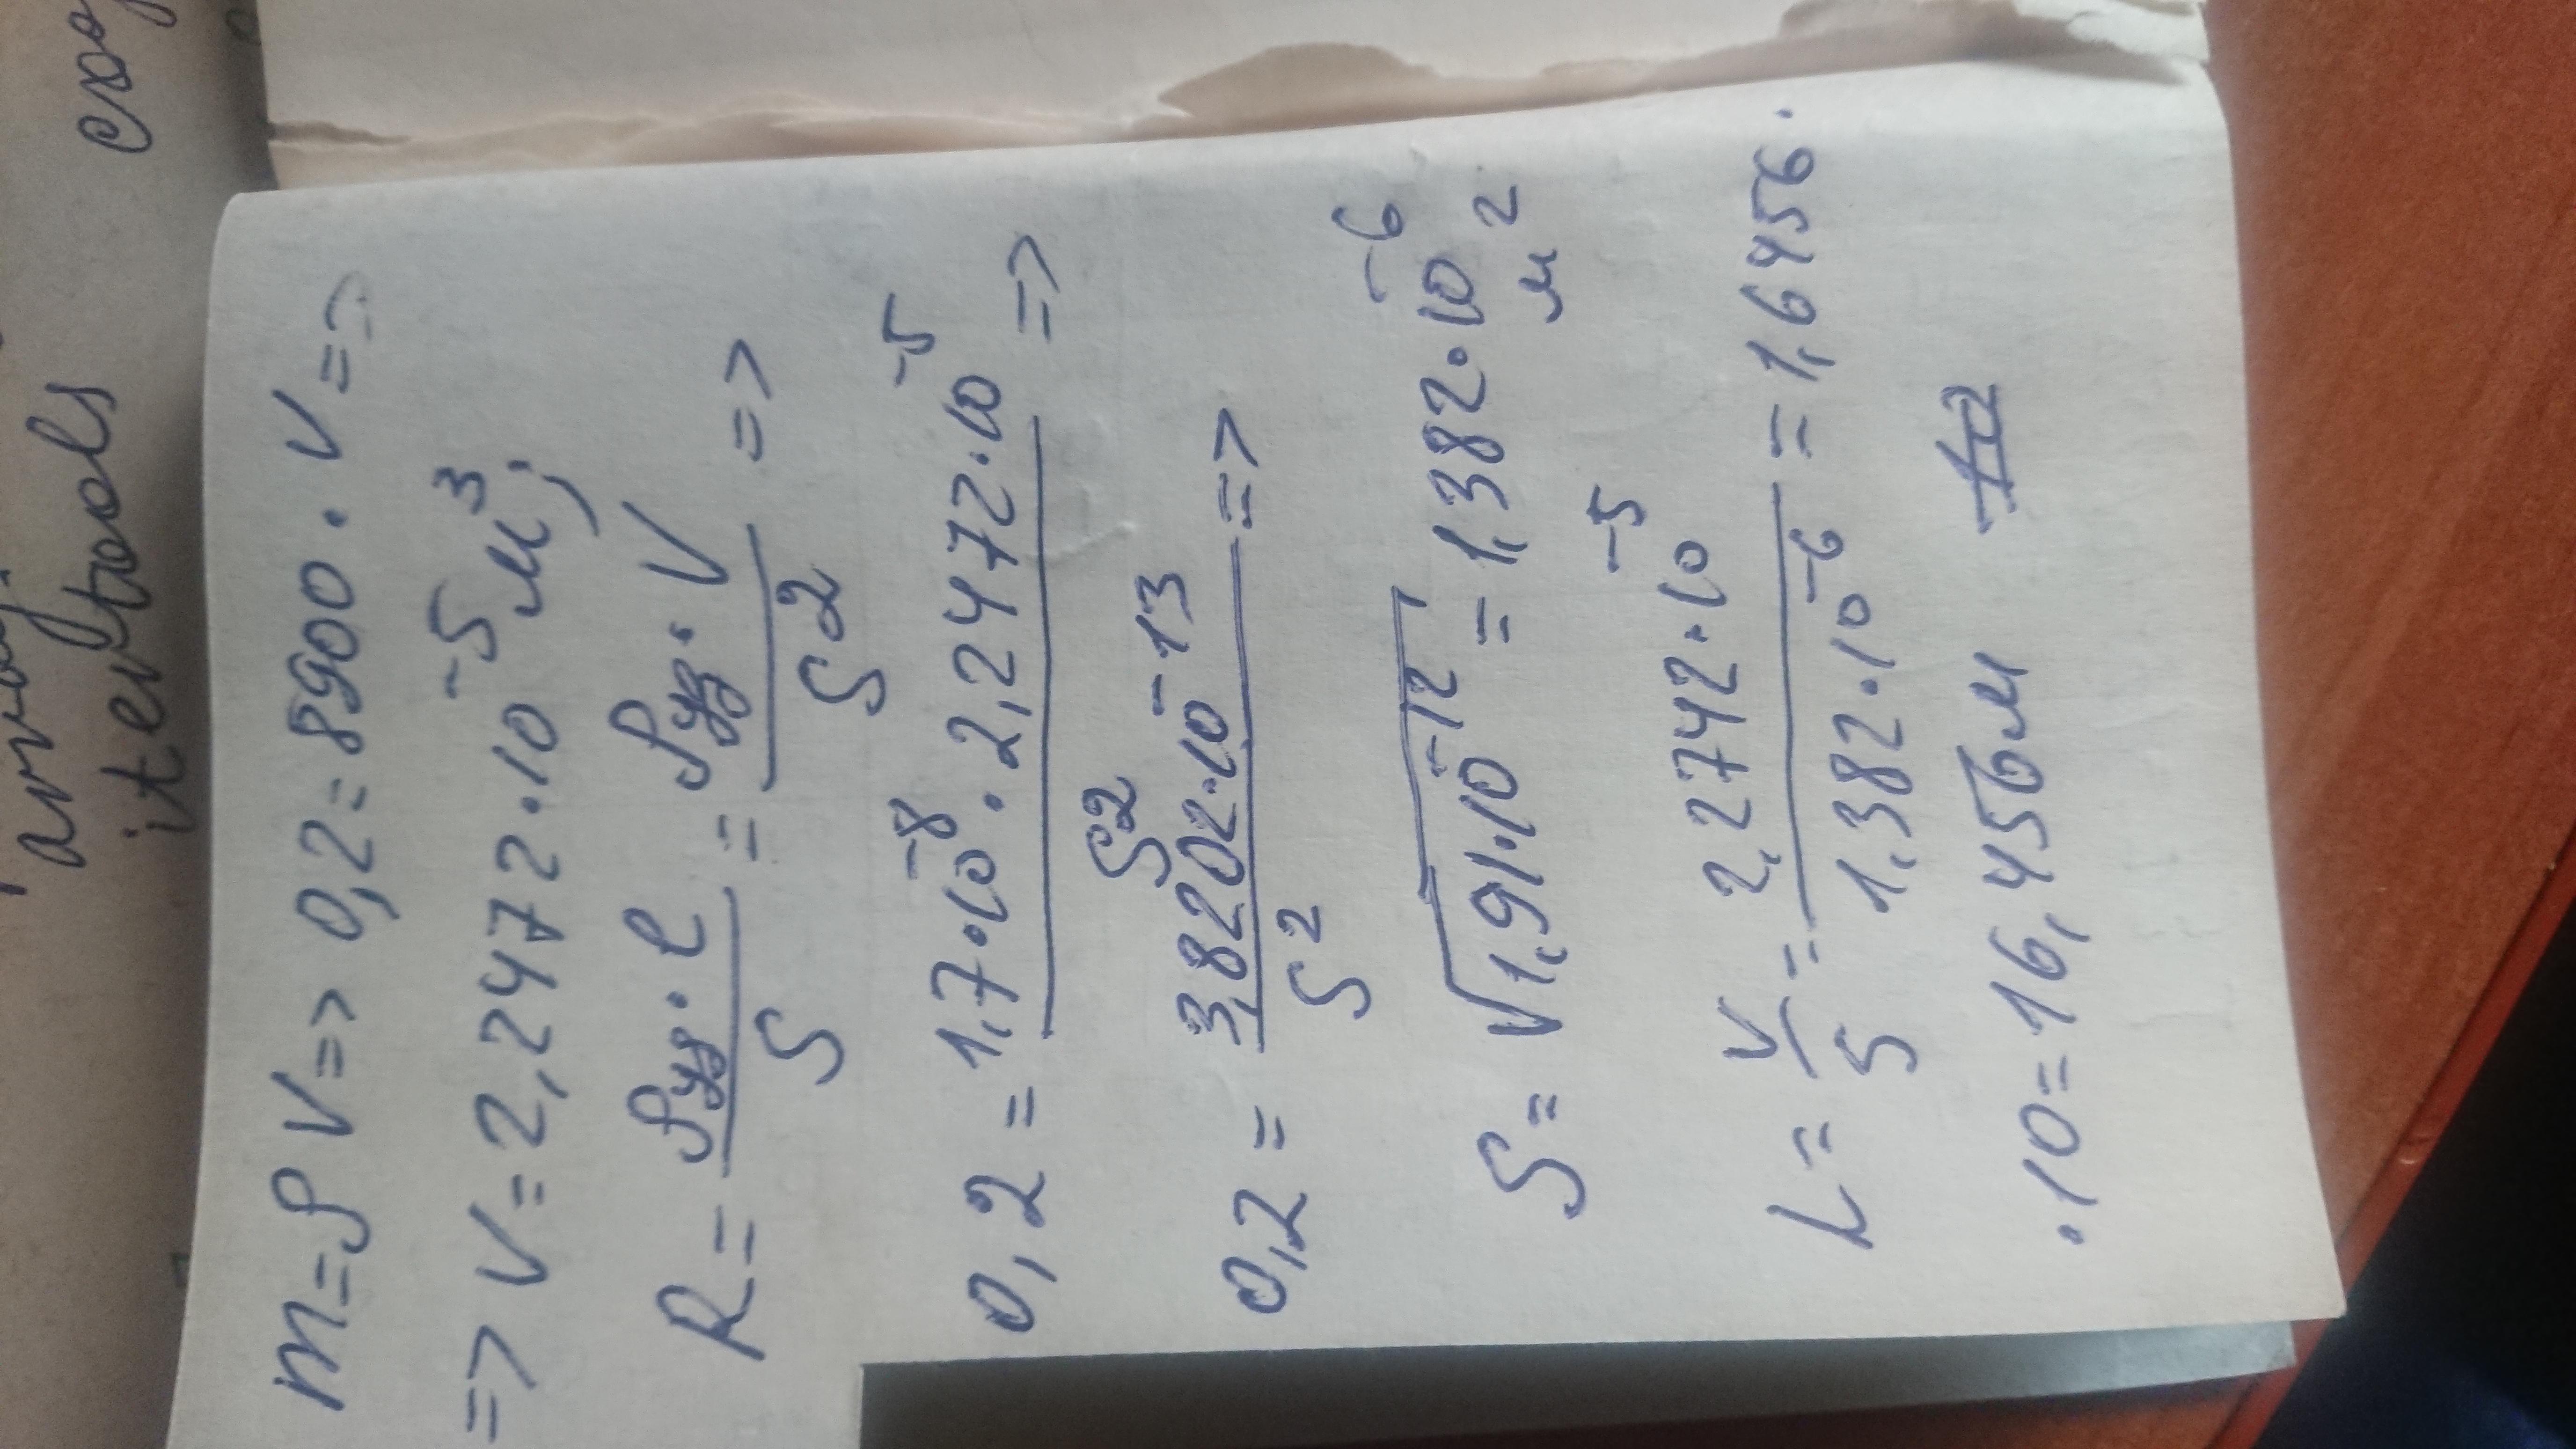 m=ρV=> 0,2=8900·V=>
=> V=2,2472·10⁻⁵м³;
R= ρуд·l/S = ρуд·V/S² =>
0,2= 1,7·10⁻⁸·2,2472·10⁻⁵/S² =>
0,2= 3,8202·10⁻¹³/S² =>
S= √1,91·10⁻¹² = 1,382·10⁻⁶ м²
L= V/S = 2,2742·10⁻⁵/1,382·10⁻⁶ = 1,6456·
·10=16,456м
itertools